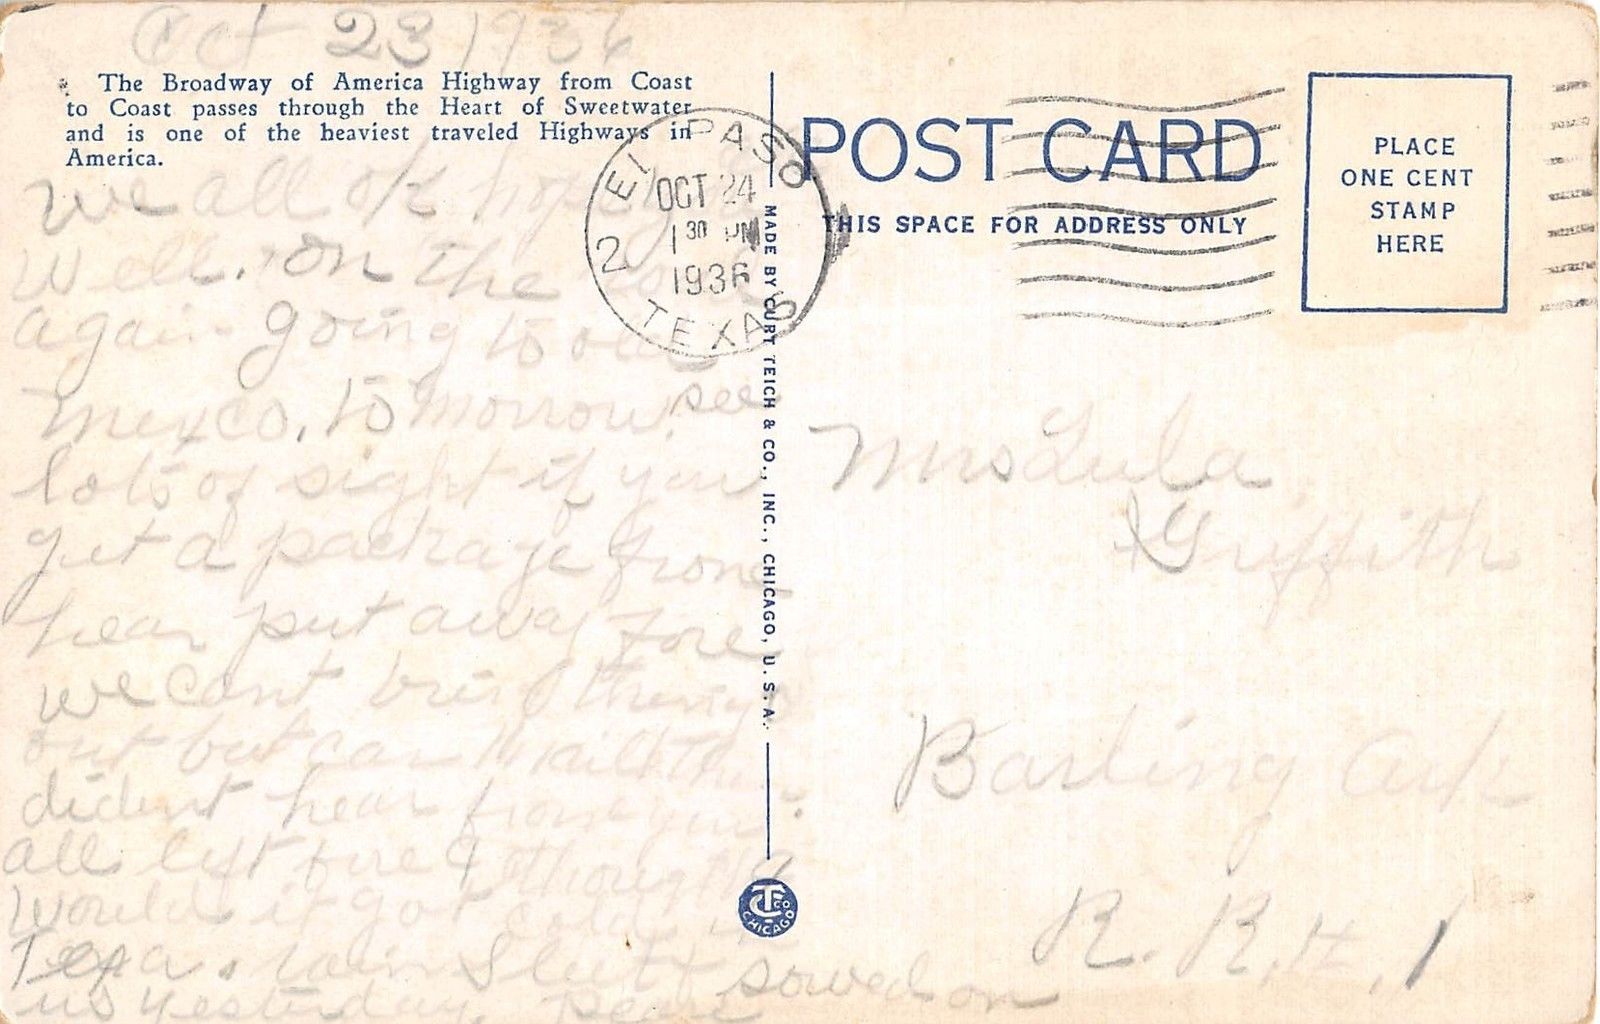 Oct 23 1936
The Broadway of America Highway from Coast
to Coast passes through the Heart of Sweetwater
and is one of the heaviest traveled Highways in
America.
We all o/k hope you
well. on the
again going to old
Mexco. to morrow. see
lots of sight if you
get a package from
hear put away fore
we cant bring things
out but can mail them
dident hear from you.
all left fore I thought
would it got cold in
Texa. rain Sleet sowed on
us yesterday.
EL PASO
2
OCT 24
1 30 PM
1936
TEXAS
MADE BY CURT TEICH & CO., INC., CHICAGO, U. S. A.
CTCO
CHICAGO
POST CARD
THIS SPACE FOR ADDRESS ONLY
PLACE
ONE CENT
STAMP
HERE
Mrs Lula
Griffith
Barling Ark
R. R. #. 1